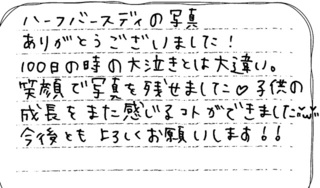 ハーフバースディの写真
ありがとうございました!
100日の時の大泣きとは大違い。
笑顔で写真を残せました♡子供の
成長をまた感じるコトができましたüwü
今後ともよろしくお願いします!!